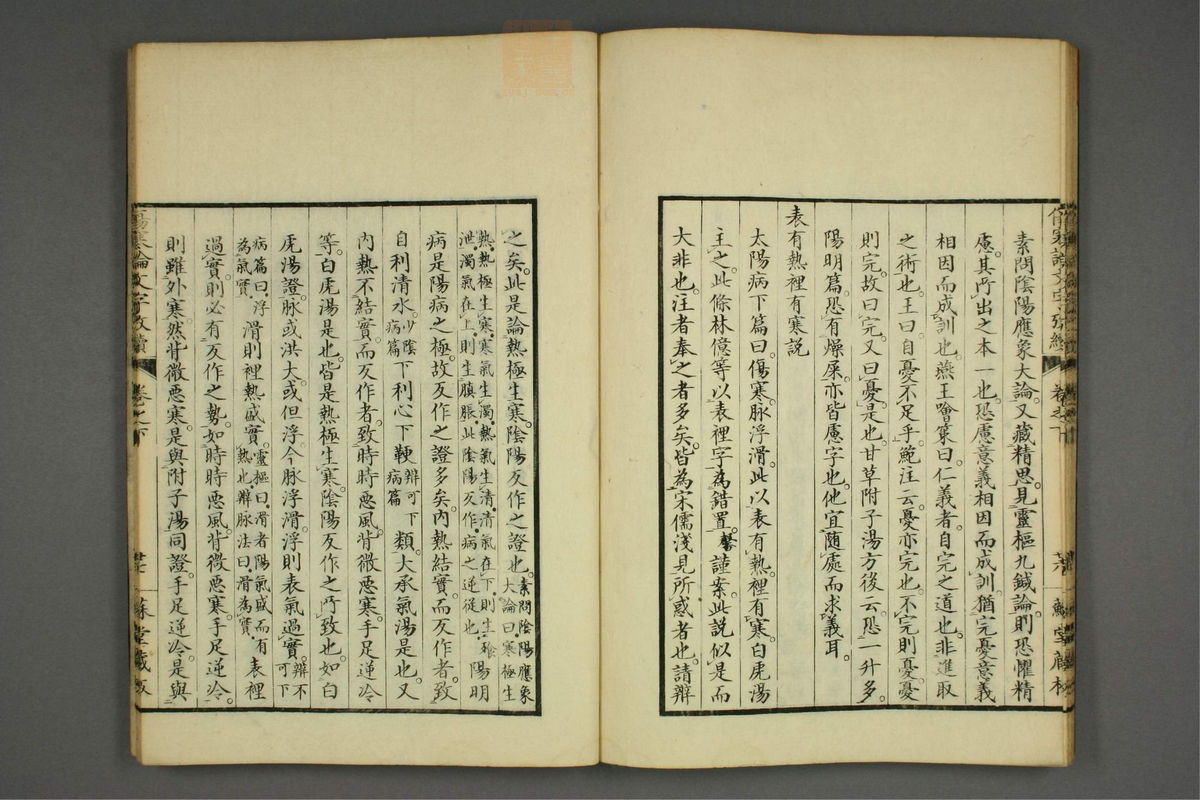 素問陰陽應象大論又藏精思見靈樞九鍼論則恐懼精
慮其所出之本一也恐慮意義相因而成訓猶完憂意義
相因而成訓也燕王噲策曰仁義者自完之道也非進取
之術也王曰自憂不足乎鮑注云憂亦完也不完則憂憂
則完故曰完又曰憂是也甘草附子湯方後云恐一升多
陽明篇恐有燥屎亦皆慮字也他宜隨處而求義耳
表有熱裡有寒説
太陽病下篇曰傷寒脉浮滑此以表有熱裡有寒白虎湯
主之此條林億等以表裡字為錯置馨謹案此説似是而
大非也注者奉之者多矣皆為宋儒淺見所惑者也請辨
之矣此是論熱極生寒陰陽反作之證也素問陰陽應象大論曰寒極生
熱熱極生寒寒氣生濁熱氣生清清氣在下則生飱泄濁氣在上則生䐜脹此陰陽反作病之逆従也陽明
病是陽病之極故反作之證多矣内熱結實而反作者致
自利清水少陰病篇下利心下鞕辨可下病篇類大承氣湯是也又
内熱不結實而反作者致時時惡風背微惡寒手足逆冷
等白虎湯是也皆是熱極生寒陰陽反作之所致也如白
虎湯證脉或洪大或但浮今脉浮滑浮則表氣過實辨不可下
病篇曰浮為氣實滑則裡熱盛實靈樞曰滑者陽氣盛而有熱也辨脉法曰滑為實表裡
過實則必有反作之勢如時時惡風背微惡寒手足逆冷
則雖外寒然背微惡寒是與附子湯同證手足逆冷是與
傷寒論文字攷續
卷之下
蘇堂藏板